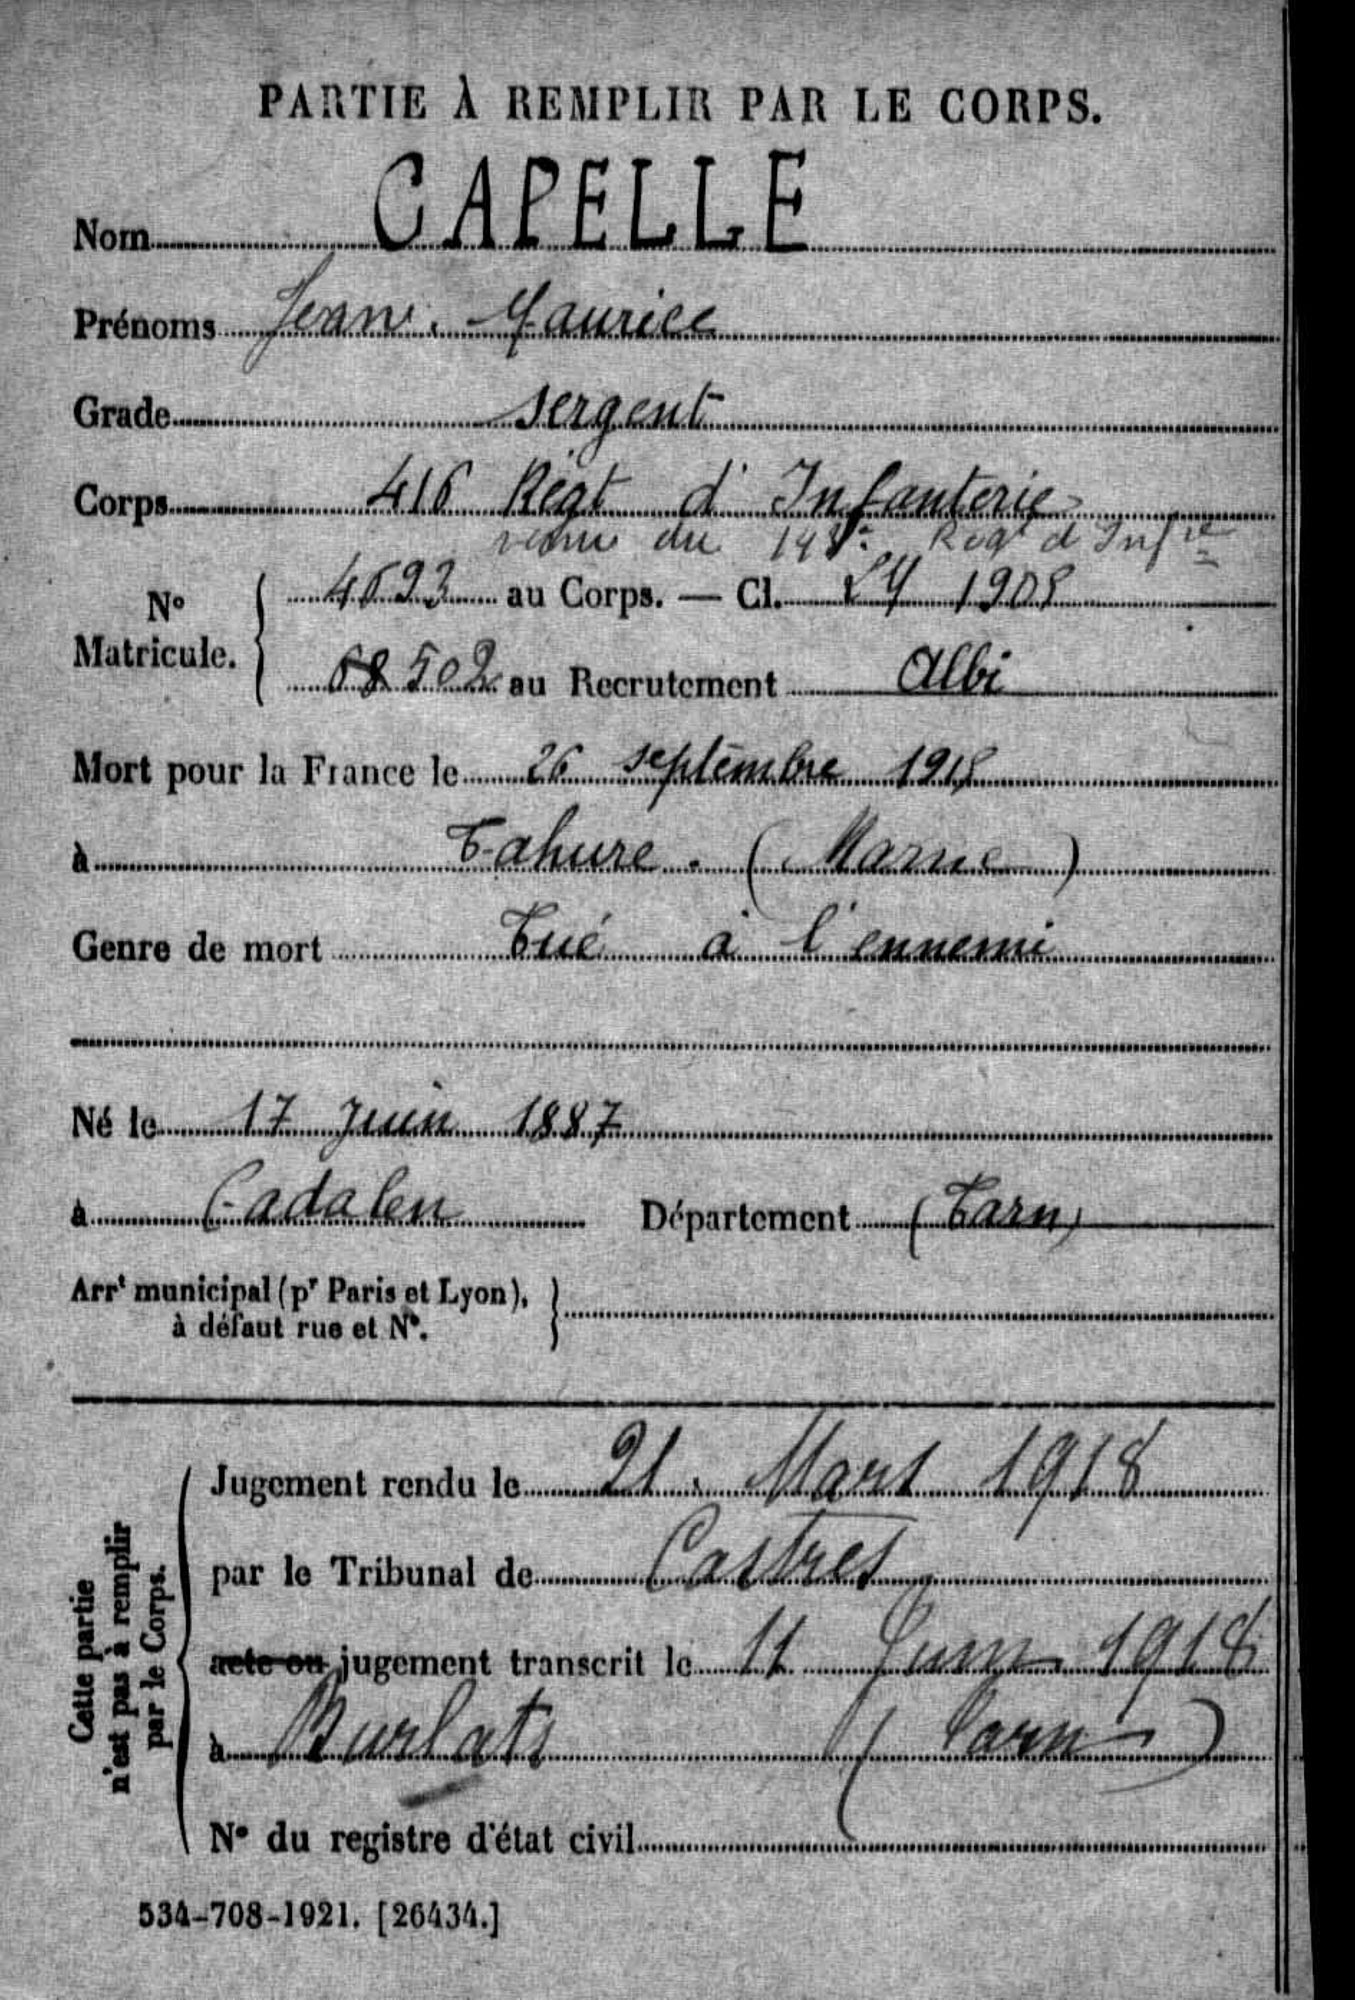 PARTIE À REMPLIR PAR LE CORPS.
Nom CAPELLE
Prénoms Jean. Maurice
Grade sergent
Corps 416 Régt d'Infanterie
venu du Regt d'Infie
N° Matricule. 4693 au Corps. — Cl. 1908
502 au Recrutement Albi
Mort pour la France le 26 septembre 1915
à Tahure. (Marne)
Genre de mort Tué à l'ennemi
Né le 17 Juin 1887
à Cadalen Département (Tarn)
Arrt municipal (pr Paris et Lyon),
à défaut rue et N°.
Cette partie
n'est pas à remplir
par le Corps.
Jugement rendu le 21 Mars 1918
par le Tribunal de Castres
acte ou jugement transcrit le 11 Juin 1918
à Burlats (Tarn)
N° du registre d'état civil
534-708-1921. [26434.]